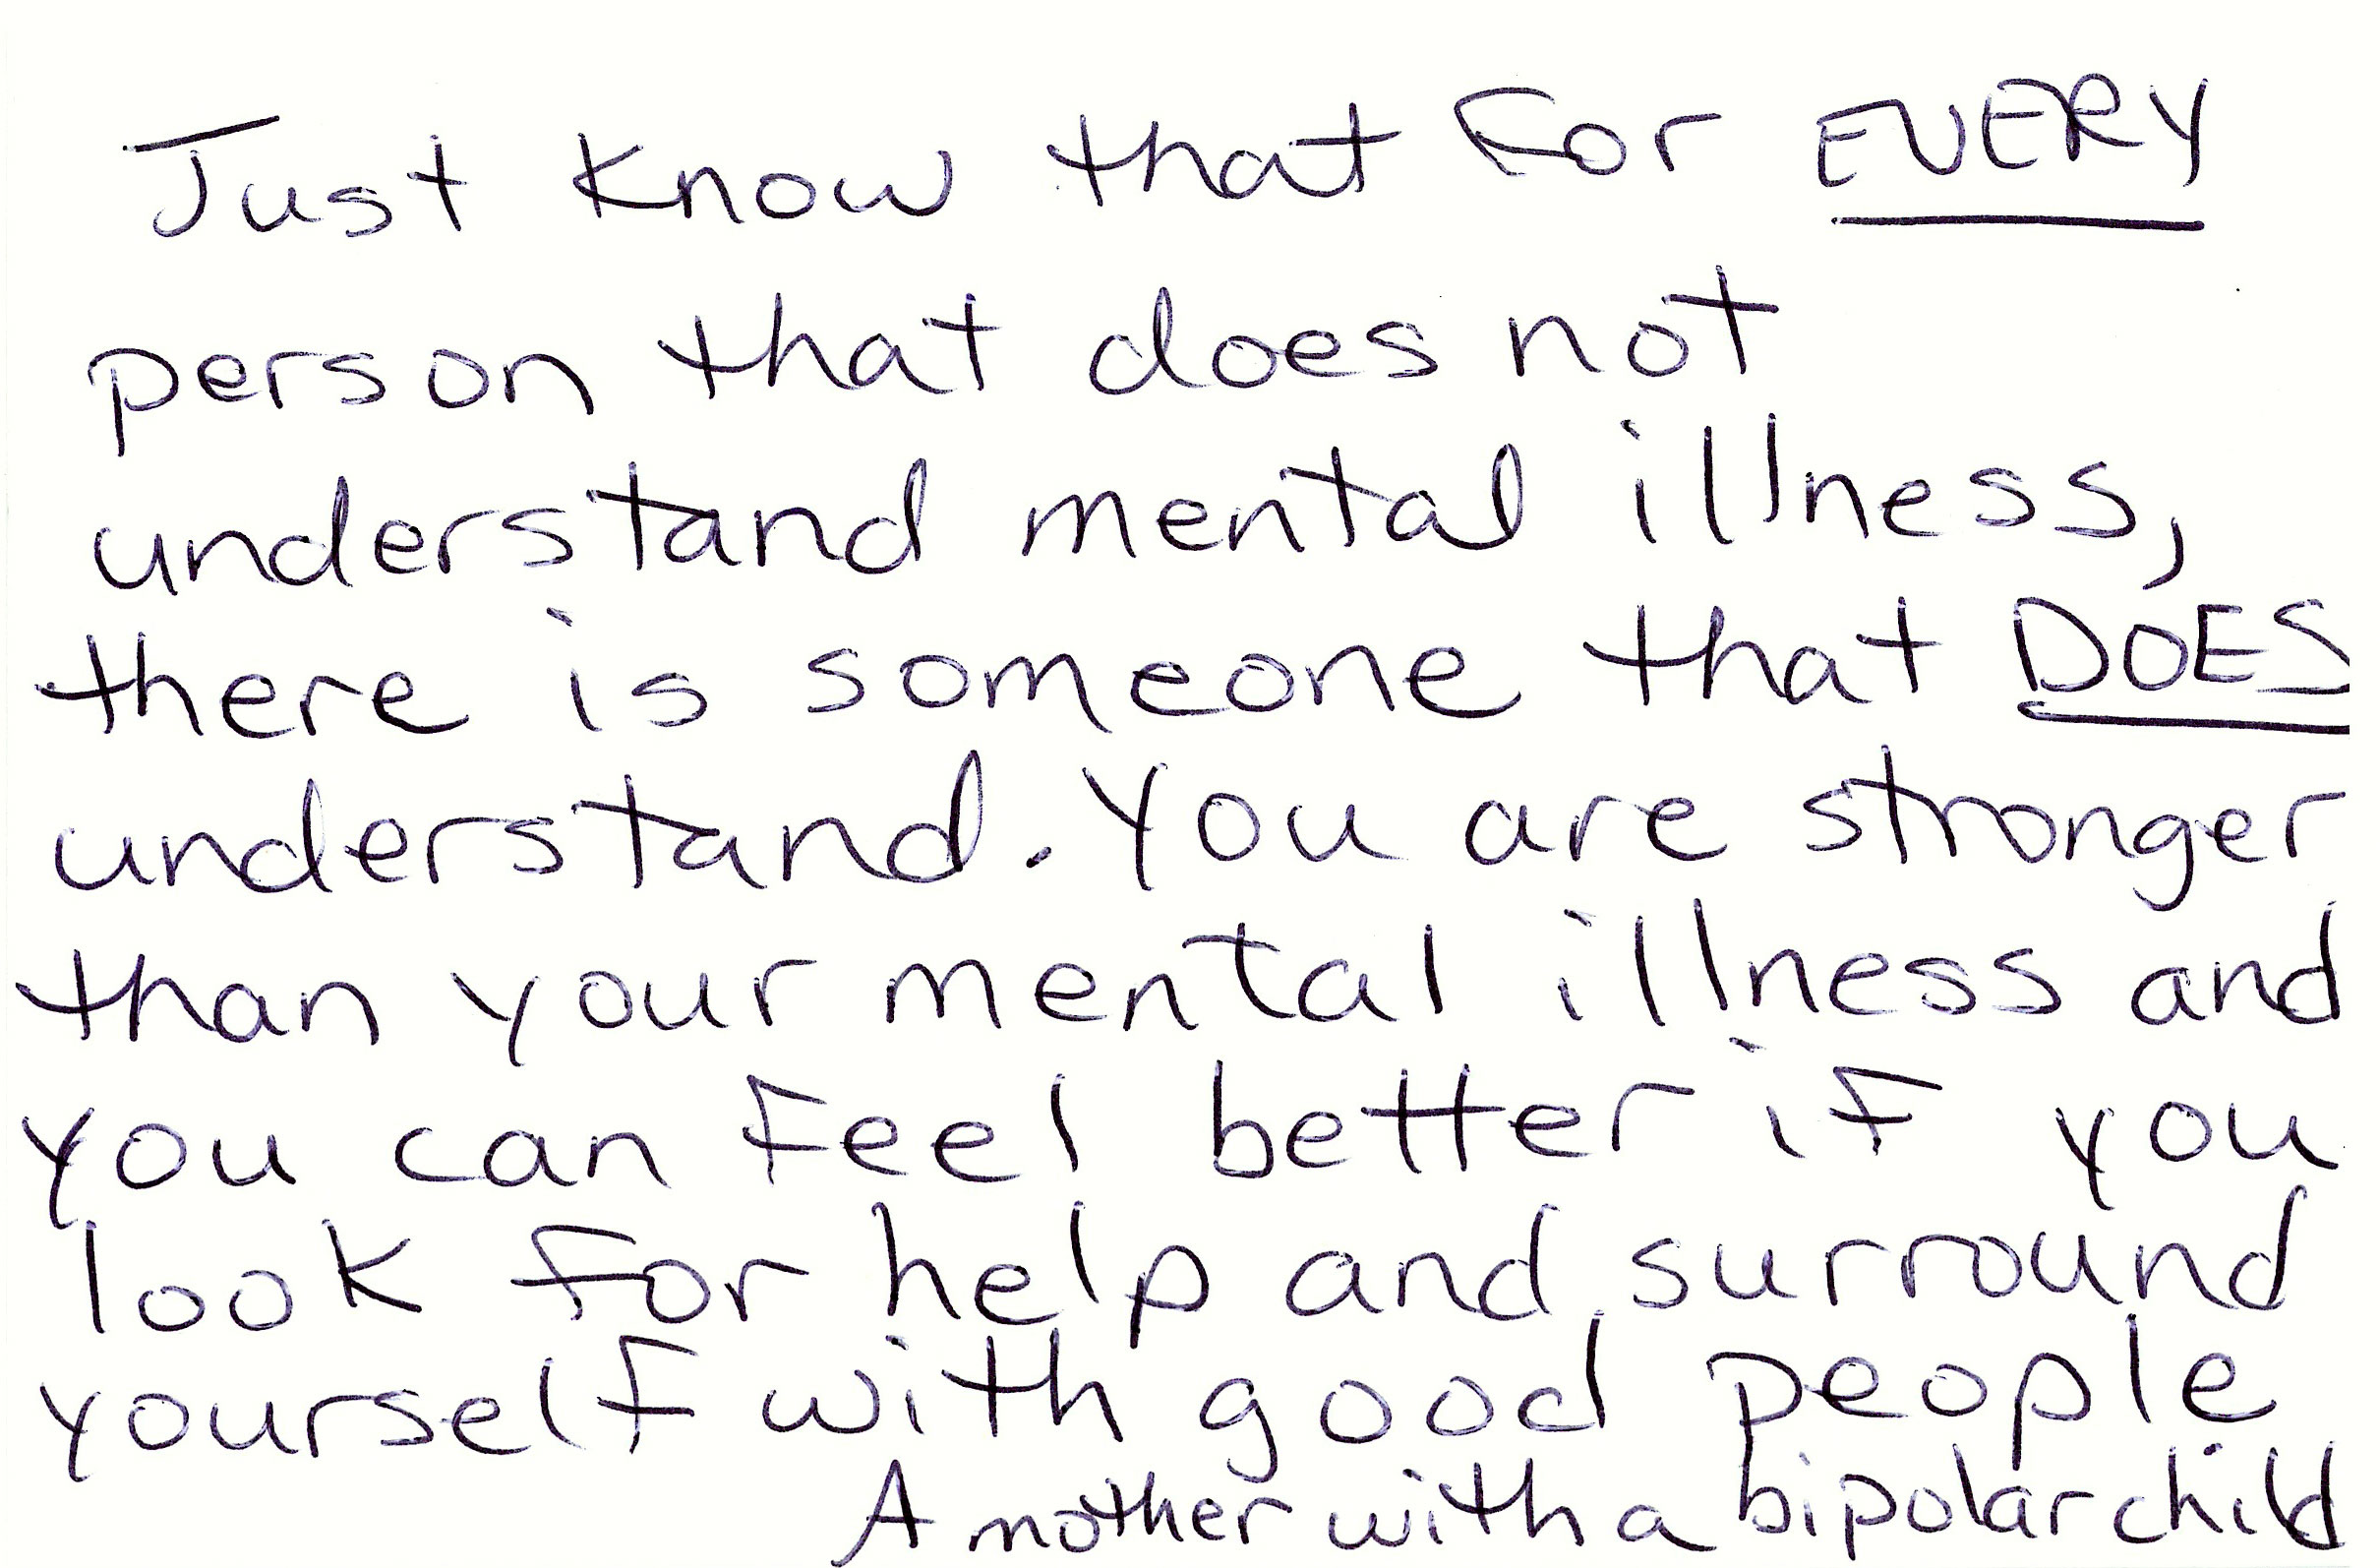 Just know that for EVERY
person that does not
understand mental illness,
there is someone that DOES
understand. You are stronger
than your mental illness and
you can feel better if you
look for help and surround
yourself with good people
A mother with a bipolar child